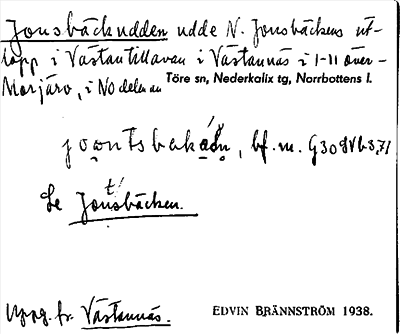 Jonsbäckudden udde N. Jonsbäckens ut-
lopp i Västantillavan i Västannäs i 1-11 över-
Morjärv, i NO delen av Töre sn, Nederkalix tg, Norrbottens l.
bf. m.
Se Jontsbäcken.
Uppg. fr. Västannäs. EDVIN BRÄNNSTRÖM 1938.